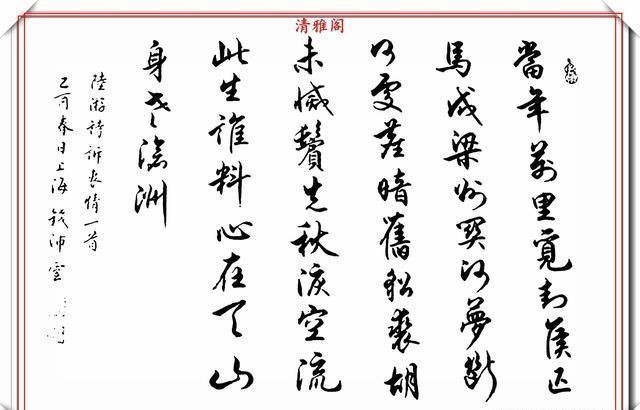 清雅阁
當年萬里覓封侯匹
馬戍梁州關河夢斷
何處塵暗舊貂裘胡
未滅鬢先秋淚空流
此生誰料心在天山
身老滄洲
陸游詩訴衷情一首
己亥春日上海錢沛雲